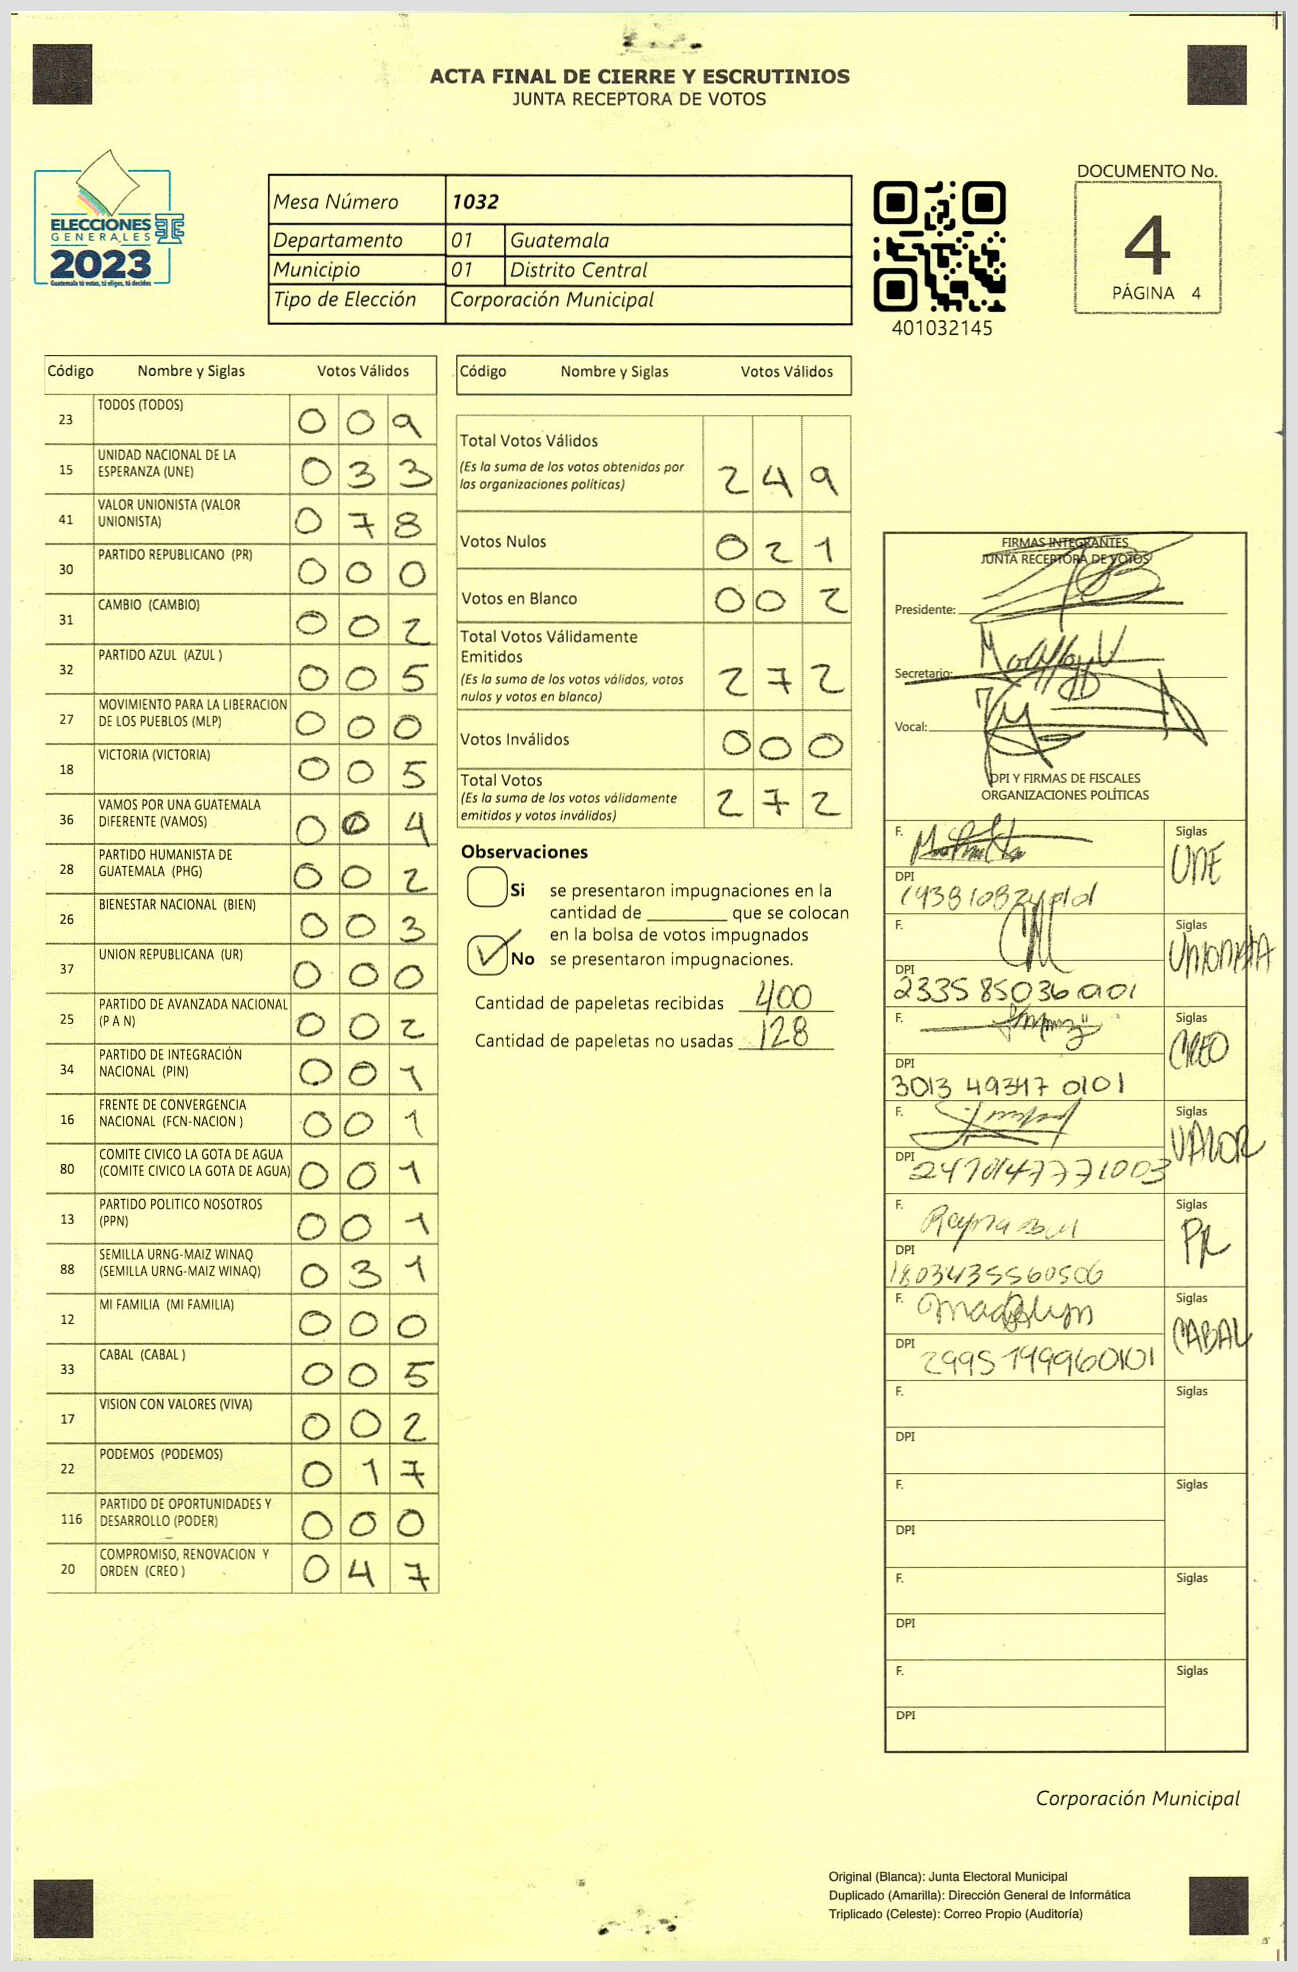 ACTA FINAL DE CIERRE Y ESCRUTINIOS
JUNTA RECEPTORA DE VOTOS
ELECCIONES
GENERALES
2023
Guatemala tú votas, tú eliges, tú decides
Mesa Número 1032
Departamento 01 Guatemala
Municipio 01 Distrito Central
Tipo de Elección Corporación Municipal
401032145
DOCUMENTO No.
4
PÁGINA 4
Código Nombre y Siglas Votos Válidos
23 TODOS (TODOS) 0 0 9
15 UNIDAD NACIONAL DE LA
ESPERANZA (UNE) 0 3 3
41 VALOR UNIONISTA (VALOR
UNIONISTA) 0 7 8
30 PARTIDO REPUBLICANO (PR) 0 0 0
31 CAMBIO (CAMBIO) 0 0 2
32 PARTIDO AZUL (AZUL ) 0 0 5
27 MOVIMIENTO PARA LA LIBERACION
DE LOS PUEBLOS (MLP) 0 0 0
18 VICTORIA (VICTORIA) 0 0 5
36 VAMOS POR UNA GUATEMALA
DIFERENTE (VAMOS) 0 0 4
28 PARTIDO HUMANISTA DE
GUATEMALA (PHG) 0 0 2
26 BIENESTAR NACIONAL (BIEN) 0 0 3
37 UNION REPUBLICANA (UR) 0 0 0
25 PARTIDO DE AVANZADA NACIONAL
(P A N) 0 0 2
34 PARTIDO DE INTEGRACIÓN
NACIONAL (PIN) 0 0 1
16 FRENTE DE CONVERGENCIA
NACIONAL (FCN-NACION ) 0 0 1
80 COMITE CIVICO LA GOTA DE AGUA
(COMITE CIVICO LA GOTA DE AGUA) 0 0 1
13 PARTIDO POLITICO NOSOTROS
(PPN) 0 0 1
88 SEMILLA URNG-MAIZ WINAQ
(SEMILLA URNG-MAIZ WINAQ) 0 3 1
12 MI FAMILIA (MI FAMILIA) 0 0 0
33 CABAL (CABAL ) 0 0 5
17 VISION CON VALORES (VIVA) 0 0 2
22 PODEMOS (PODEMOS) 0 1 7
116 PARTIDO DE OPORTUNIDADES Y
DESARROLLO (PODER) 0 0 0
20 COMPROMISO, RENOVACION Y
ORDEN (CREO ) 0 4 7
Código Nombre y Siglas Votos Válidos
Total Votos Válidos
(Es la suma de los votos obtenidos por
las organizaciones políticas) 2 4 9
Votos Nulos 0 2 1
Votos en Blanco 0 0 2
Total Votos Válidamente
Emitidos
(Es la suma de los votos válidos, votos
nulos y votos en blanco) 2 7 2
Votos Inválidos 0 0 0
Total Votos
(Es la suma de los votos válidamente
emitidos y votos inválidos) 2 7 2
Observaciones
Si se presentaron impugnaciones en la
cantidad de ________ que se colocan
en la bolsa de votos impugnados
No se presentaron impugnaciones.
Cantidad de papeletas recibidas 400
Cantidad de papeletas no usadas 128
FIRMAS INTEGRANTES
JUNTA RECEPTORA DE VOTOS
Presidente:
Secretario:
Vocal:
DPI Y FIRMAS DE FISCALES
ORGANIZACIONES POLÍTICAS
F. Siglas
UNE
DPI
F. Siglas
UNIONISTA
DPI
2335 85036 0101
F. Siglas
CREO
DPI
3013 49347 0101
F. Siglas
VALOR
DPI
2470147771003
F. Siglas
PR
DPI
1803435560506
F. Siglas
CABAL
DPI
2995 199960101
F. Siglas
DPI
F. Siglas
DPI
F. Siglas
DPI
F. Siglas
DPI
Corporación Municipal
Original (Blanca): Junta Electoral Municipal
Duplicado (Amarilla): Dirección General de Informática
Triplicado (Celeste): Correo Propio (Auditoría)